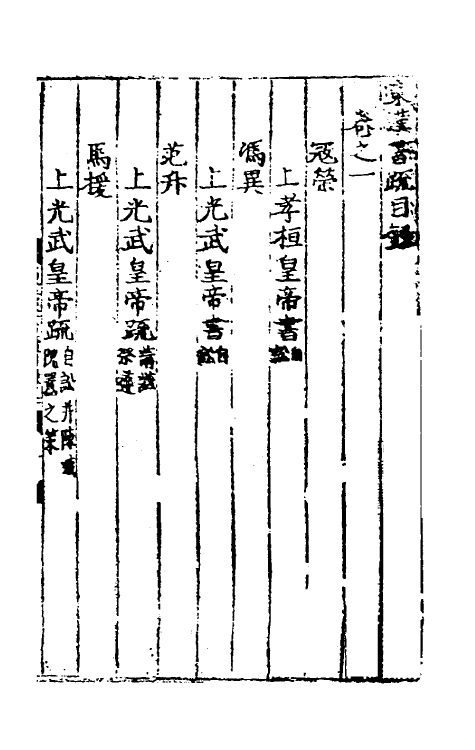 東漢書疏目錄
卷之一
寇榮
上孝桓皇帝書自訟
馮異
上光武皇帝書自訟
范升
上光武皇帝疏請謚祭遵
馬援
上光武皇帝疏自訟并陳滅隗囂之策